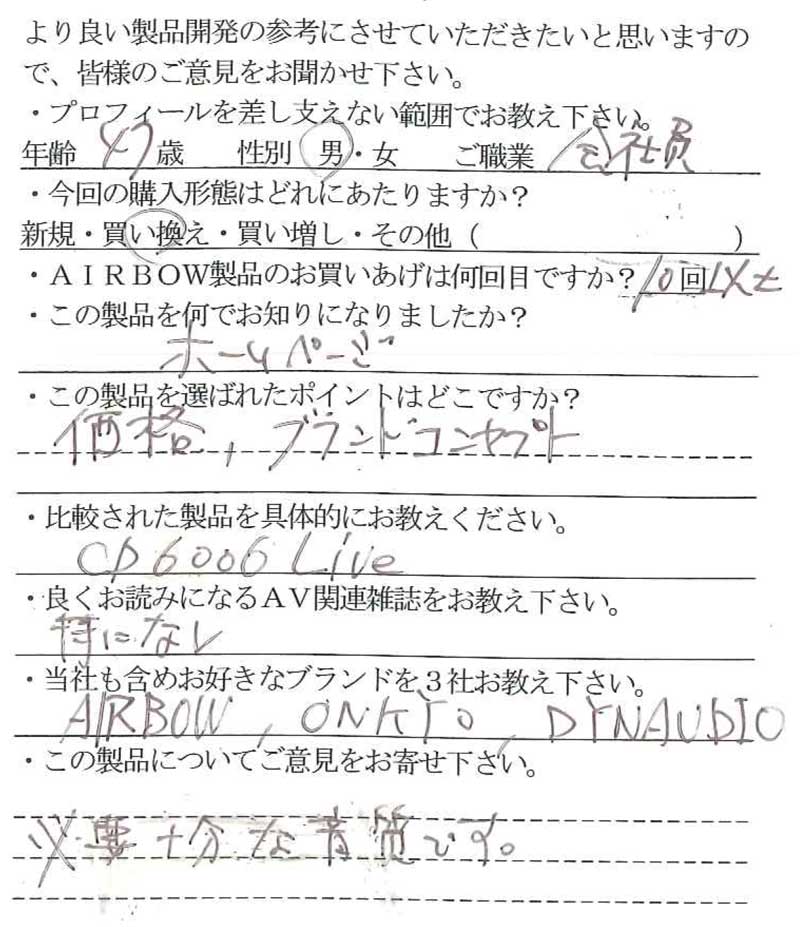 より良い製品開発の参考にさせていただきたいと思いますの
で、皆様のご意見をお聞かせ下さい。
・プロフィールを差し支えない範囲でお教え下さい。
年齢 47 歳 性別 男・女 ご職業 会社員
・今回の購入形態はどれにあたりますか？
新規・買い換え・買い増し・その他（ ）
・ＡＩＲＢＯＷ製品のお買いあげは何回目ですか？10回以上
・この製品を何でお知りになりましたか？
ホームページ
・この製品を選ばれたポイントはどこですか？
価格, ブランドコンセプト
・比較された製品を具体的にお教えください。
CD6006 Live
・良くお読みになるＡＶ関連雑誌をお教え下さい。
特になし
・当社も含めお好きなブランドを３社お教え下さい。
AIRBOW, ONKYO, DYNAUDIO
・この製品についてご意見をお寄せ下さい。
必要十分な音質です。